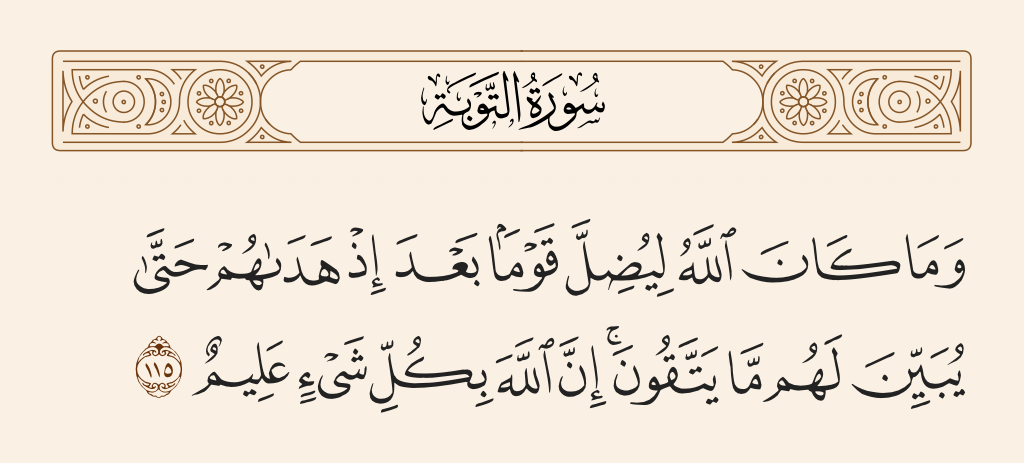 سُورَةُ التَّوۡبَةِ
وَمَا كَانَ ٱللَّهُ لِيُضِلَّ قَوۡمَۢا بَعۡدَ إِذۡ هَدَىٰهُمۡ حَتَّىٰ
يُبَيِّنَ لَهُم مَّا يَتَّقُونَۚ إِنَّ ٱللَّهَ بِكُلِّ شَيۡءٍ عَلِيمٌ ١١٥